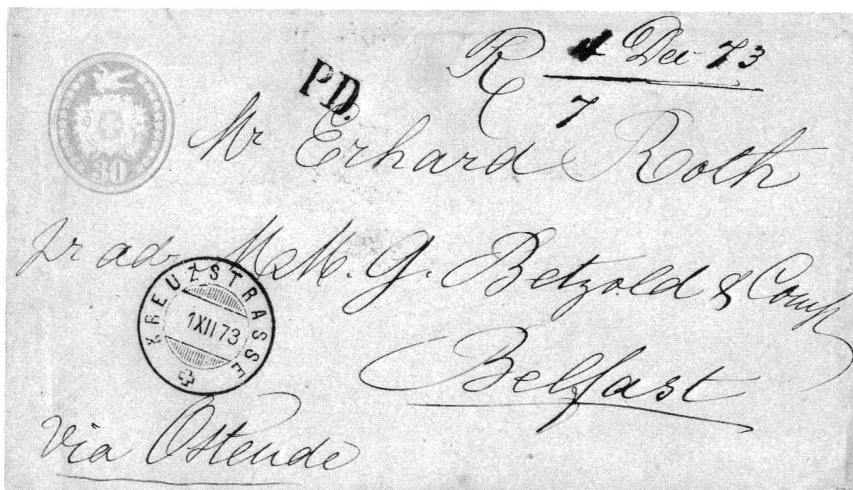 30
P.D.
R 4 Dec 73
7
Mr Erhard Roth
pr adr. MM. G. Betzold & Comp
KREUZSTRASSE
1 XII 73
Belfast
via Ostende